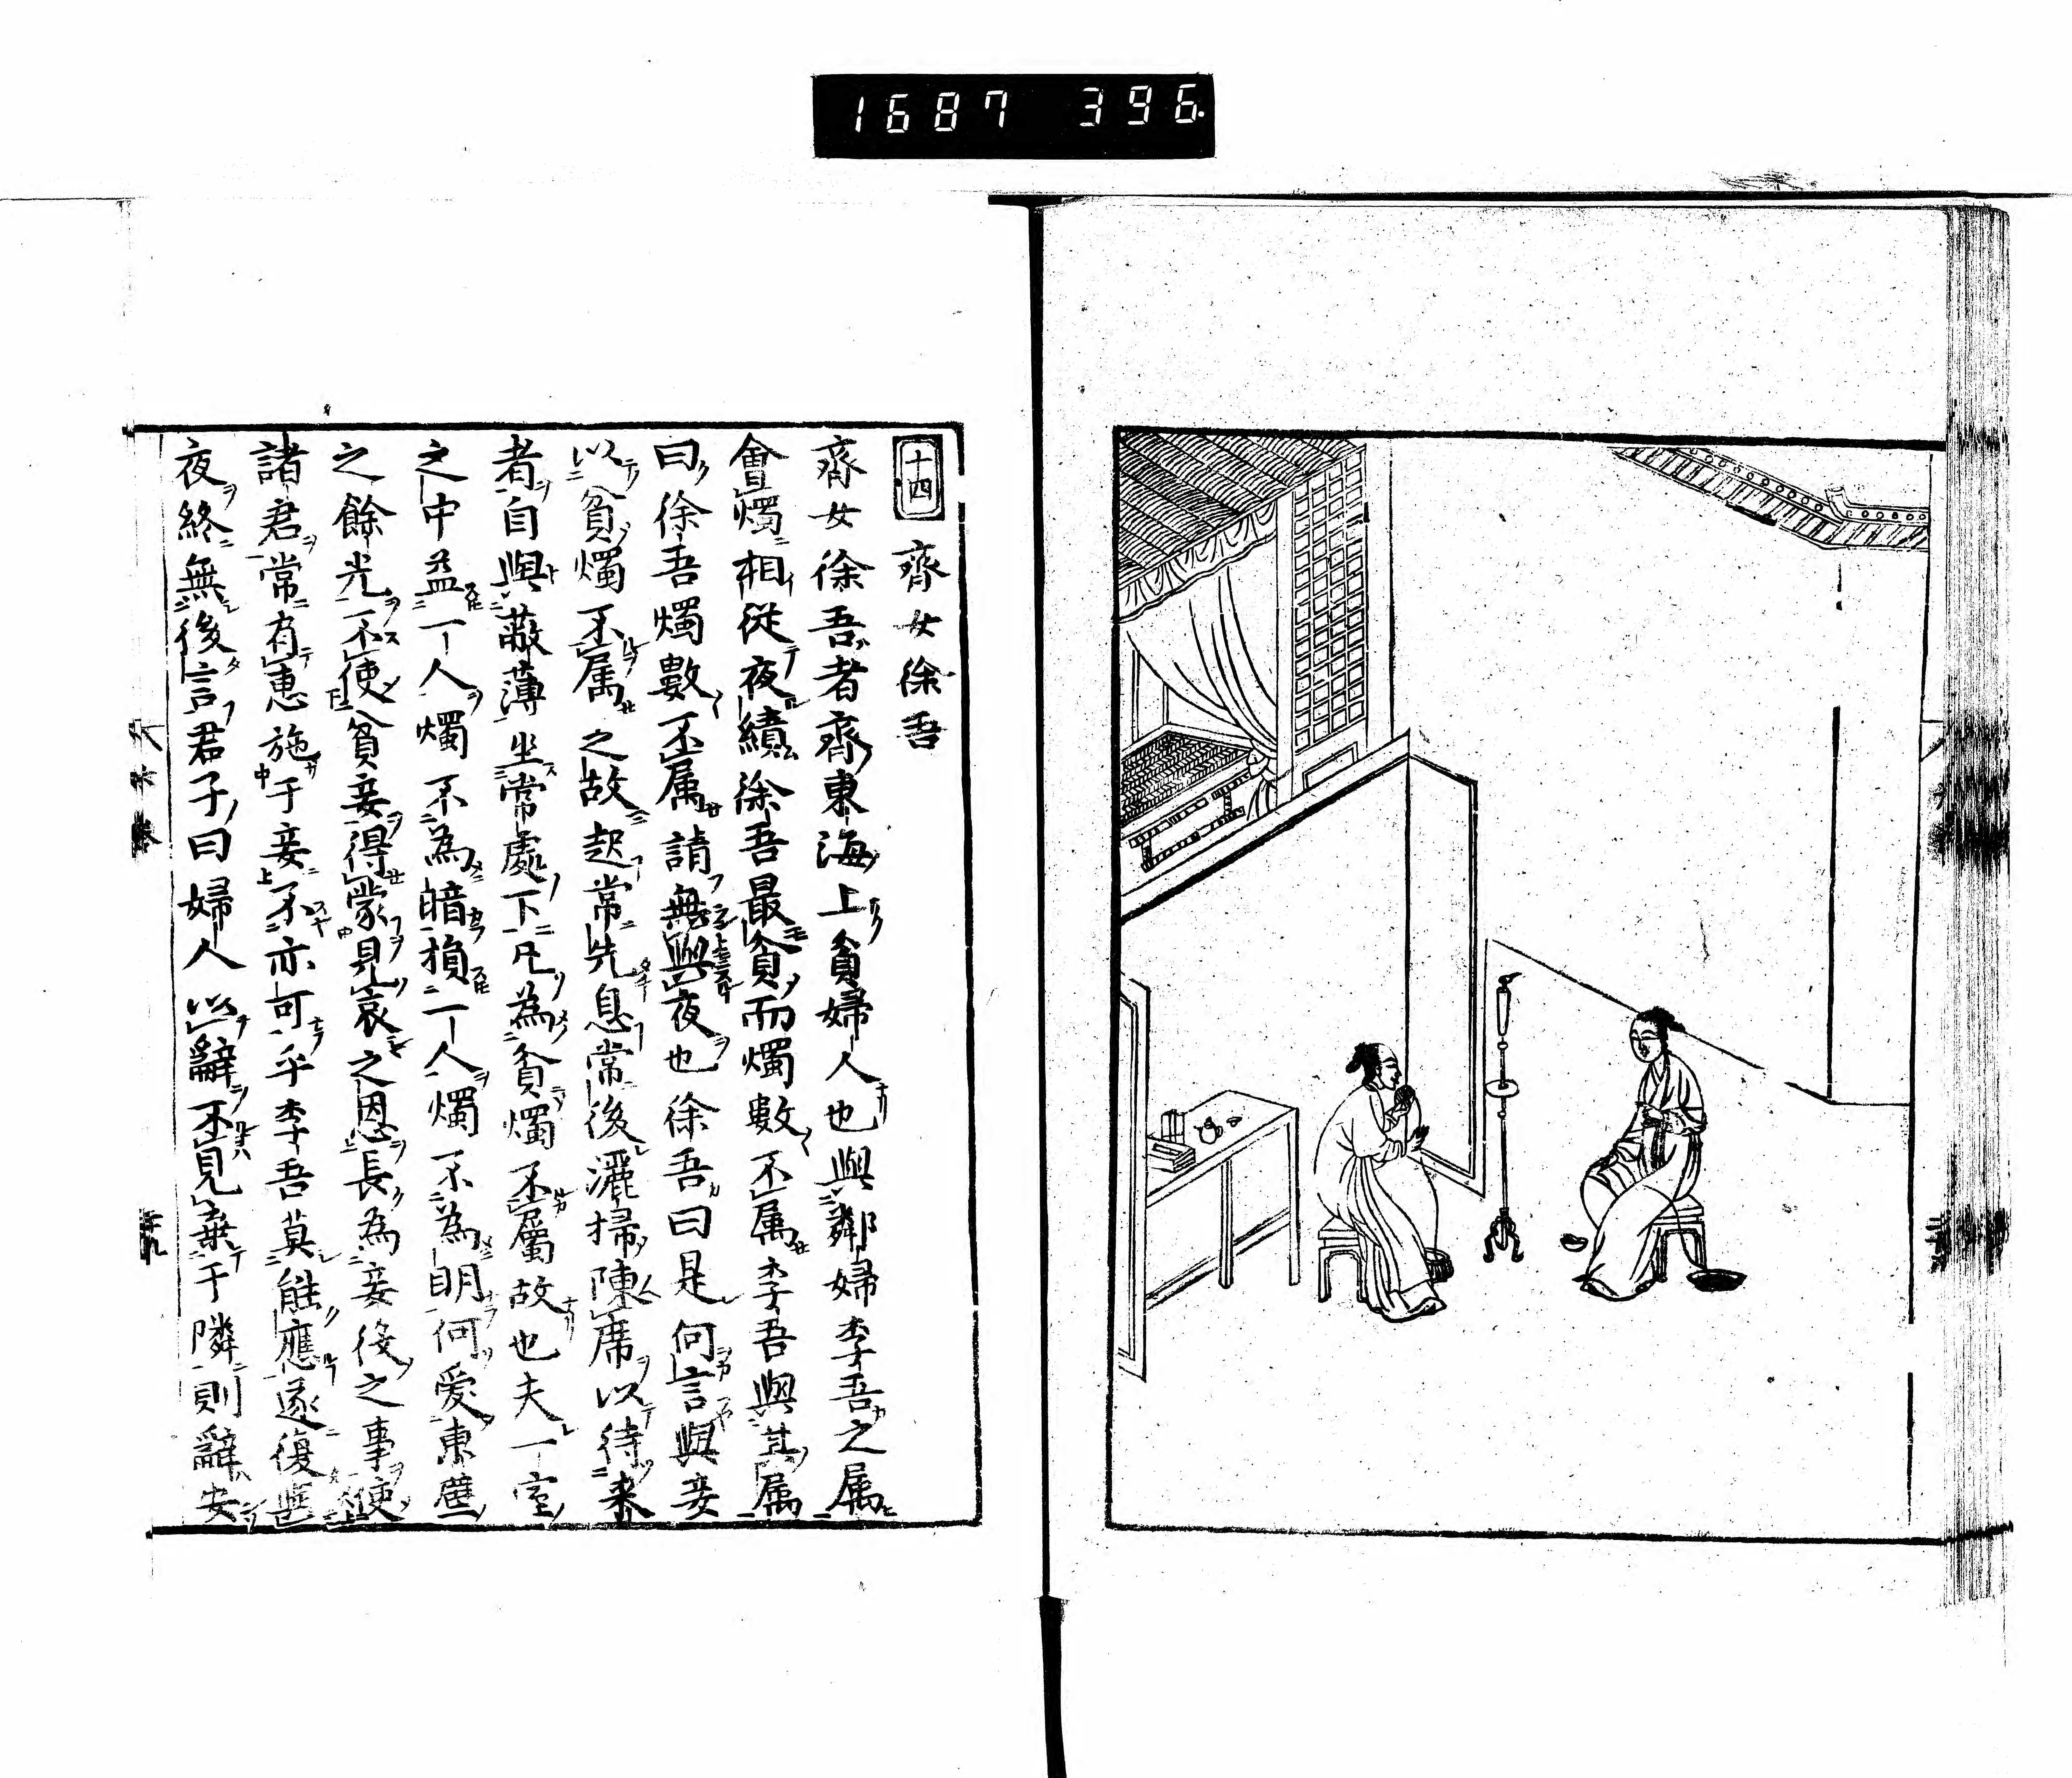 1687 396
十四 齊女徐吾
齊女徐吾者齊東海上貧婦人也與鄰婦李吾之属
會燭相從夜績徐吾最貧而燭數不属李吾與其属
曰徐吾燭數不属請無與夜也徐吾曰是何言與妾
以貧燭不属之故起常先息常後灑掃陳席以待来
者自與蔽薄坐常處下凡為貧燭不屬故也夫一室
之中益一人燭不為暗損一人燭不為明何愛東壁
之餘光不使貧妾得蒙見哀之恩長為妾役之事使
諸君常有惠施于妾不亦可乎李吾莫能應遂復與
夜終無後言君子曰婦人以辭不見棄于隣則辭安